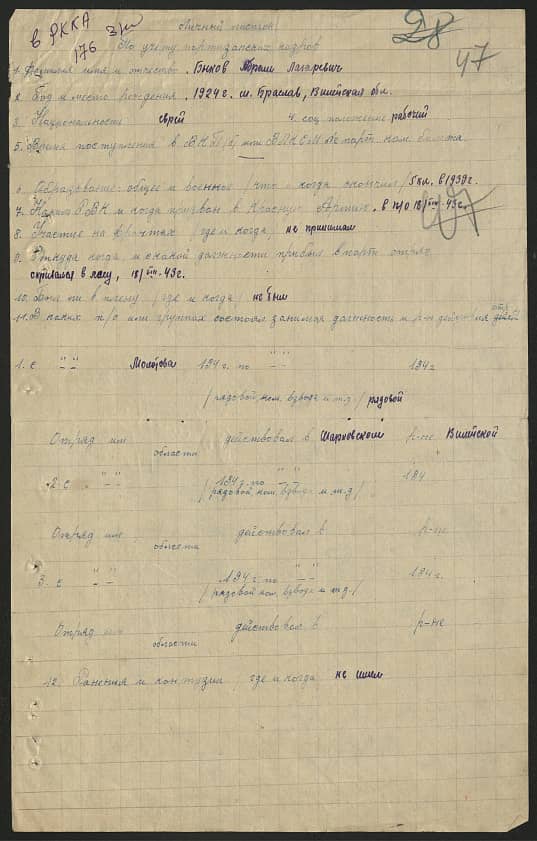 в РККА
176 з/и
28
47
Личный листок
По учету партизанских кадров
1. Фамилия имя и отчество. Быков Абрам Лазаревич
2. Год и место рождения, 1924г. м. Браслав, Вилейская обл.
3. Национальность еврей 4. соц положение рабочий
5. Время поступления в ВКП/б/ или ВЛКСМ № парт. ком. билета.
6. Образование: общее и военное /что и когда окончил/ 5 кл. в 1939г.
7. Каким РВК и когда призван в Красную Армию. в п/о 18/VIII-43г.
8. Участие на фронтах /где и когда/ не принимал
9. Откуда когда, и с какой должности прибыл в парт. отряд.
скрывался в лесу, 18/VIII-43г.
10. Был ли в плену /где и когда/ не был
11. В каких п/о или группах состоял занимая должность и р-н действия отр
1. с " " Молотова 194 г. по " " 194 г
/рядовой, ком. взвода и т.д./ рядовой
Отряд им действовал в Шарковском р-не Вилейской
области
2. с " " 194 г. по " " 194
/рядовой, ком. взвода и т.д/
Отряд им действовал в р-не
области
3. с " " 194 г. по " " 194 г.
/рядовой ком. взвода и т.д./
Отряд им действовал в р-не
области
12. Ранения и контузии /где и когда не имел